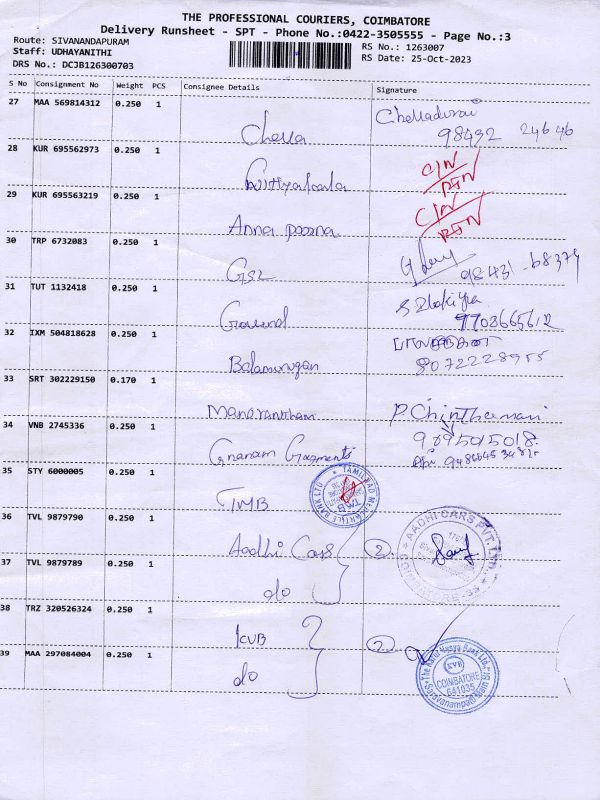 THE PROFESSIONAL COURIERS, COIMBATORE
Delivery Runsheet - SPT - Phone No.:0422-3505555 - Page No.:3
Route: SIVANANDAPURAM
Staff: UDHAYANITHI
DRS No.: DCJB126300703
RS No.: 1263007
RS Date: 25-Oct-2023
S No Consignment No Weight PCS Consignee Details Signature
27 MAA 569814312 0.250 1 Chella Chelladurai
98432 24646
28 KUR 695562973 0.250 1 C/N
RTN
29 KUR 695563219 0.250 1 Anna poorna C/N
RTN
30 TRP 6732083 0.250 1 GSL 98431-68374
31 TUT 1132418 0.250 1 Govind
9703665612
32 IXM 504818628 0.250 1 Balamurugan
8072228955
33 SRT 302229150 0.170 1 Manorantham P. Chinthamani
34 VNB 2745336 0.250 1 Gnanam Garments 9095015018
35 STY 6000005 0.250 1 TMB
TAMILNAD MERCANTILE BANK LTD
36 TVL 9879790 0.250 1 Aadhi Cars 2
AADHI CARS PVT. LTD
37 TVL 9879789 0.250 1 do
38 TRZ 320526324 0.250 1 KVB 2
39 MAA 297084004 0.250 1 do
The Karur Vysya Bank Ltd.,
KVB
COIMBATORE
641035